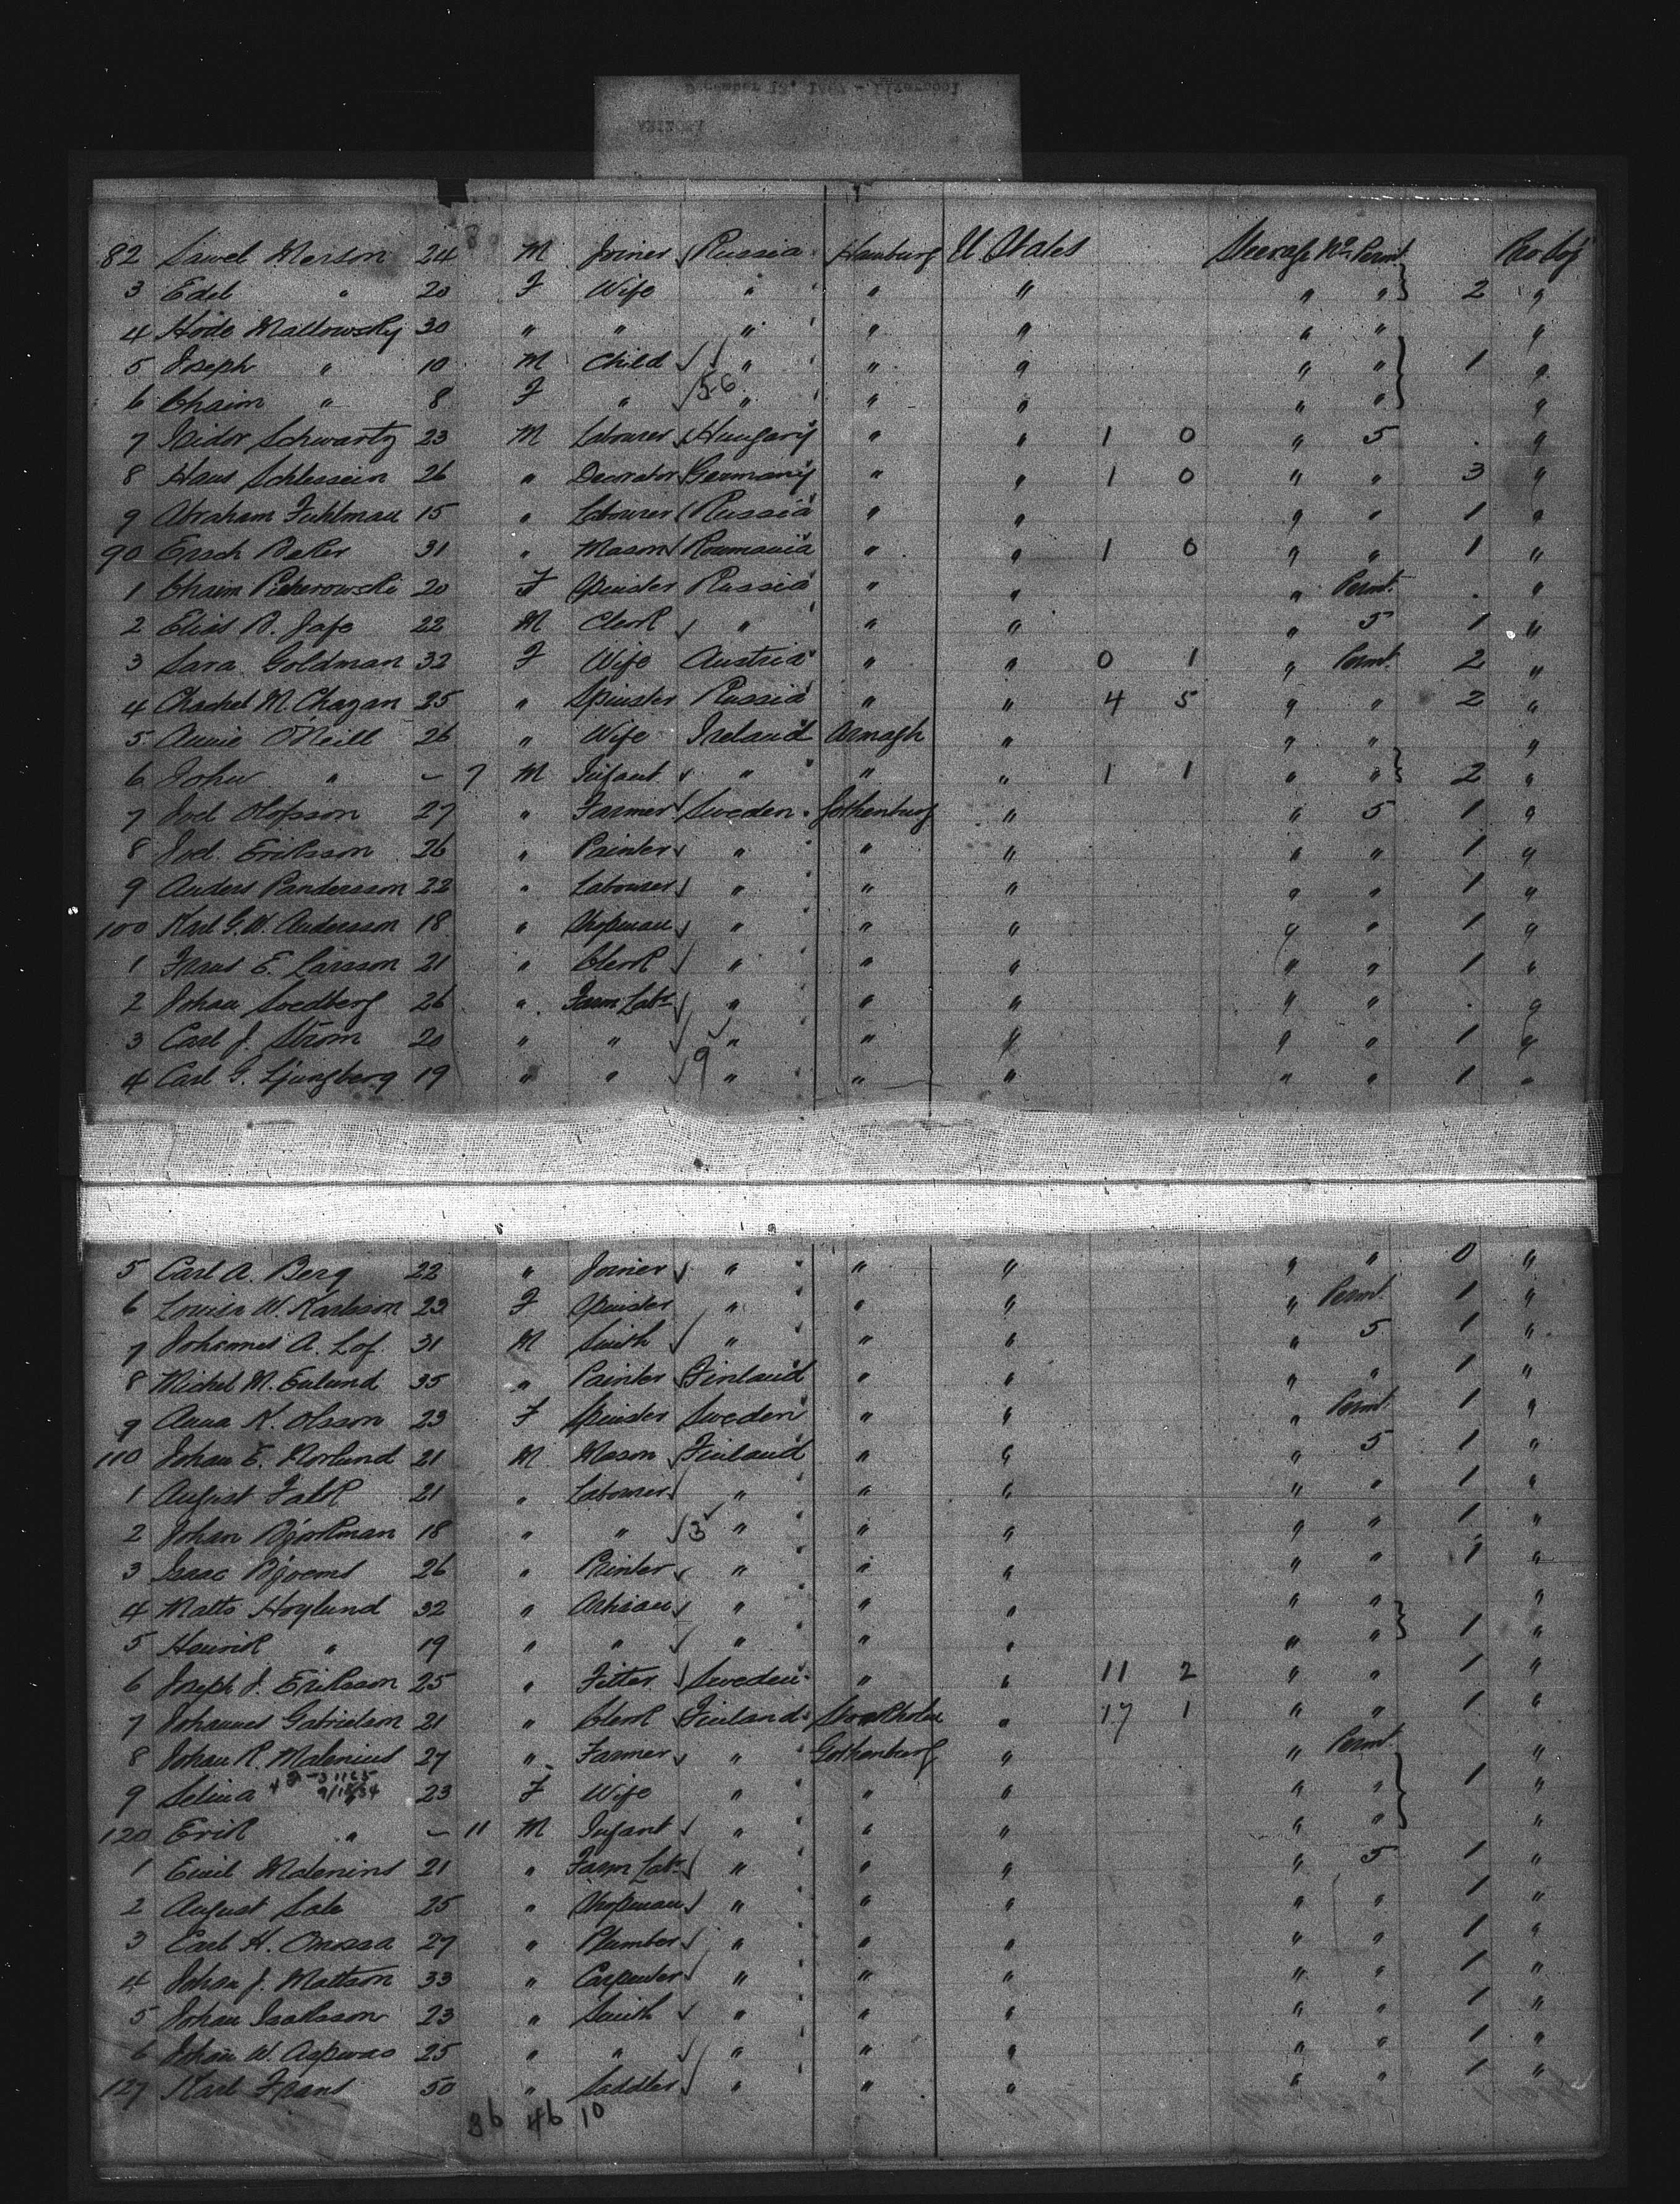 82 Sawel Merson 24 M Joiner Russia Hamburg U States Steerage No 2 Permt.
3 Edel " 20 F Wife " " " " " 2 "
4 Hode Mallowsky 30 " " " " " " " "
5 Joseph " 10 M Child " " " " " 1 "
6 Chaim " 8 F " 56 " " " " " "
7 Isidor Schwartz 23 M Labourer Hungary " " 1 0 " 5 "
8 Hans Schlessein 26 " Decorator Germany " " 1 0 " " 3 "
9 Abraham Fuhlman 15 " Labourer Russia " " " " 1 "
90 Ersch Baker 31 " Mason Roumania " " 1 0 " " 1 "
1 Chaim 20 F Spinster Russia " " " Permt. "
2 Elias B. Jafe 22 M Clerk " " " " 5 1 "
3 Sara Goldman 32 F Wife Austria " " 0 1 " Permt. 2 "
4 Chachel M. Chazan 25 " Spinster Russia " " 4 5 " " 2 "
5 Annie O'Neill 26 " Wife Ireland Armagh " " " "
6 John " - 7 M Infant " " " 1 1 " " 2 "
7 Joel Olofsson 27 " Farmer Sweden Gothenburg " " 5 1 "
8 Joel Eriksson 26 " Painter " " " " " 1 "
9 Anders Pandersson 22 " Labourer " " " " " 1 "
100 Karl G. W. Andersson 18 " Shopman " " " " " 1 "
1 Frans E. Larsson 21 " Clerk " " " " " 1 "
2 Johan Svedberg 26 " Farm Labr " " " " " "
3 Carl J. Strom 20 " " " " " " " 1 "
4 Carl G. Ljungberg 19 " " 9 " " " " " 1 "
5 Carl A. Berg 22 " Joiner " " " " " 0 "
6 Lovisa W. Karlsson 22 F Spinster " " " " Permt. 1 "
7 Johannes A. Lof 31 M Smith " " " " 5 1 "
8 Michel M. Enlund 35 " Painter Finland " " " " 1 "
9 Anna K. Olsson 23 F Spinster Sweden " " " Permt. 1 "
110 Johan E. Norlund 21 M Mason Finland " " " 5 1 "
1 August Falk 21 " Labourer " " " " " 1 "
2 Johan Bjorkman 18 " " 3 " " " " " 1 "
3 Isaac Bjoems 26 " Printer " " " " " 1 "
4 Matts Hoylund 32 " Artisan " " " " " "
5 Henrik " 19 " " " " " " " 1 "
6 Joseph J. Eriksson 25 " Fitter Sweden " " 11 2 " " 1 "
7 Johannes Gabrielson 21 " Clerk Finland Stockholm " 17 1 " " 1 "
8 Johan R. Malenius 27 " Farmer " Gothenburg " " Permt. "
9 Selina " 23 F Wife " " " " " 1 "
120 Erik " - 11 M Infant " " " " " "
1 Emil Malenius 21 " Farm Labr " " " " 5 1 "
2 August Sale 25 " Shopman " " " " " 1 "
3 Carl H. 27 " Plumber " " " " " 1 "
4 Johan J. Mattson 33 " Carpenter " " " " " 1 "
5 Johan Isaksson 23 " Smith " " " " " 1 "
6 Johan W. 25 " " " " " " " 1 "
127 Karl Frans 50 " Saddler " " " " " 1 "
36 46 10